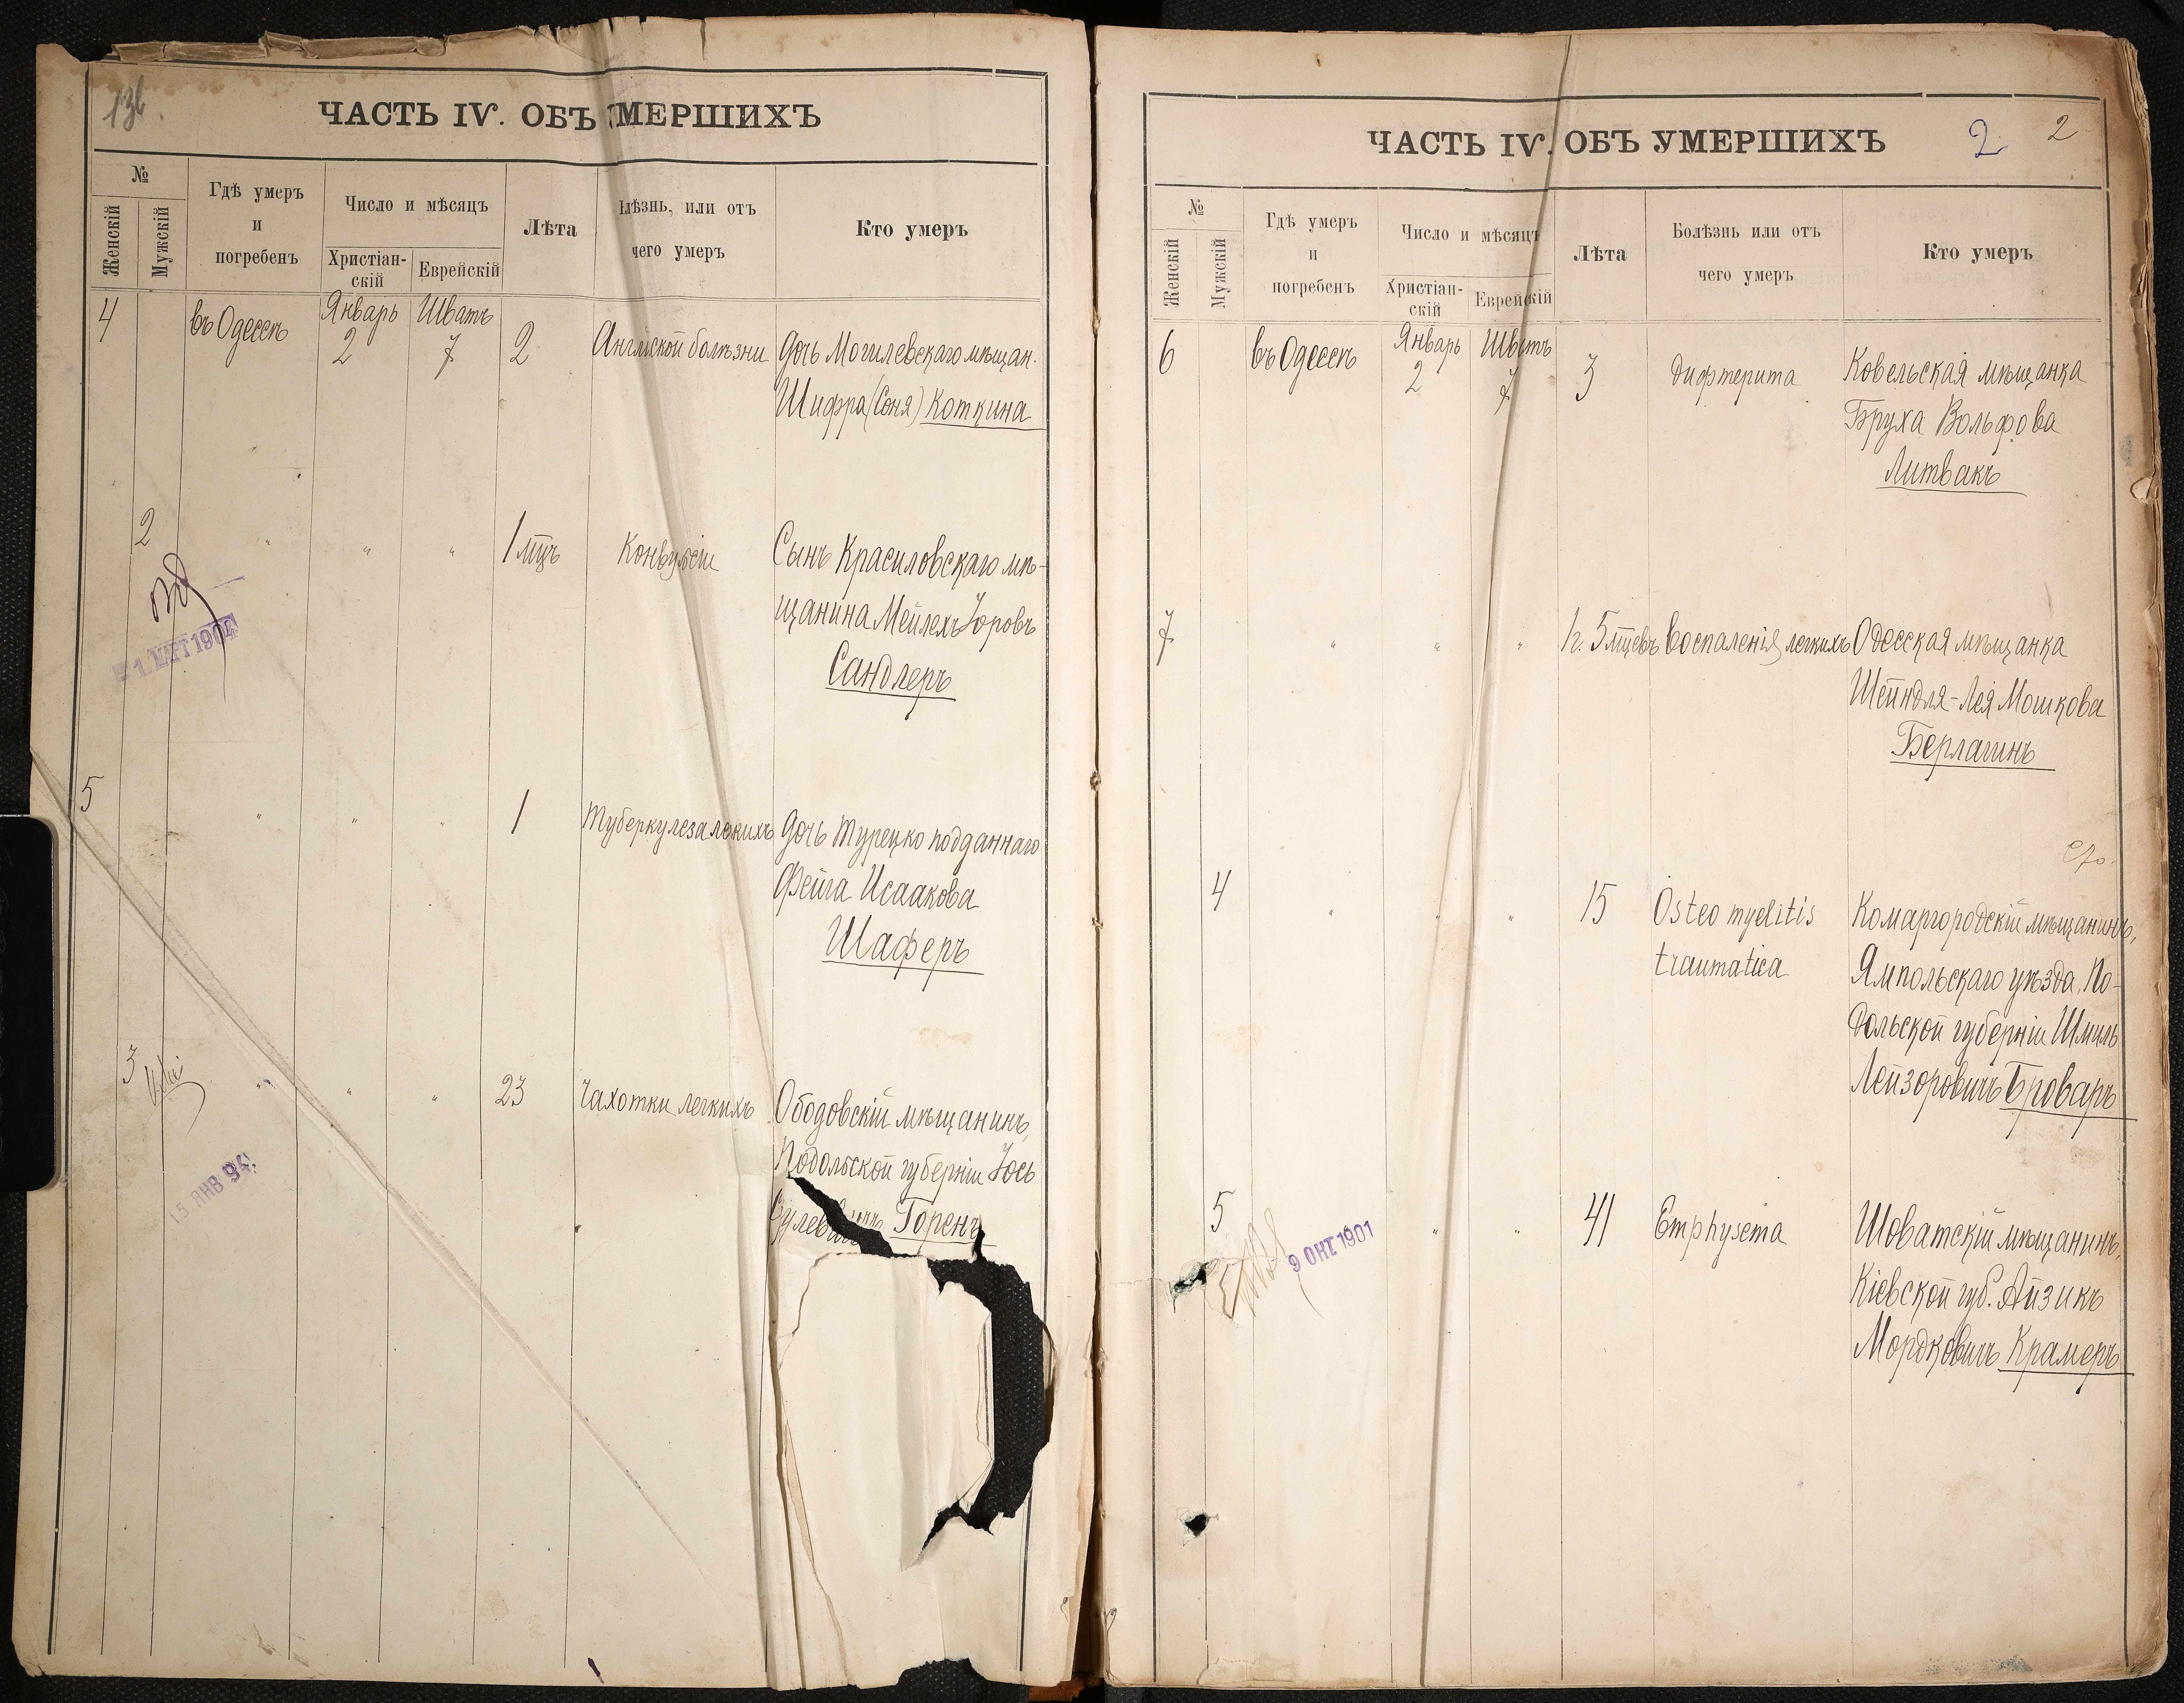 136.
ЧАСТЬ IV. ОБЪ УМЕРШИХЪ
№
Женскій
Мужскій
Гдѣ умеръ
и
погребенъ
Число и мѣсяцъ
Христіан-
скій
Еврейскій
Лѣта
лѣзнь, или отъ
чего умеръ
Кто умеръ
4 въ Одессѣ Январь 2 Шватъ 7 2 Англійской болѣзни Дочь Могилевскаго мѣщан.
Шифра (Соня) Коткина
2 " " " 1 мцъ Конвульсіи Сынъ Красиловскаго мѣ-
щанина Мейлехъ Іоровъ
Сандлеръ
1. МАРТ 1904
5 " " " 1 Туберкулеза легкихъ Дочь Турецко подданнаго
Фейга Исаакова
Шаферъ
3 " " " 23 Чахотки легкихъ Ободовскій мѣщанинъ,
Подольской губерніи Іось
Горенъ
15 ЯНВ 94.
ЧАСТЬ IV. ОБЪ УМЕРШИХЪ 2 2
№
Женскій
Мужскій
Гдѣ умеръ
и
погребенъ
Число и мѣсяцъ
Христіан-
скій
Еврейскій
Лѣта
Болѣзнь или отъ
чего умеръ
Кто умеръ
6 въ Одессѣ Январь 2 Шватъ 7 3 дифтерита Ковельская мѣщанка
Бруха Вольфова
Литвакъ
7 " " " 1г. 5 мцевъ воспаленія легкихъ Одесская мѣщанка
Шейндля-Лея Мошкова
Берлагинъ
4 " " " 15 Osteo myelitis Комаргородскій мѣщанинъ,
traumatica Ямпольскаго уѣзда, По-
дольской губерніи Шмиль
Лейзоровичъ Броваръ
5 " " " 41 Emphysema Шоватскій мѣщанинъ,
9 ОКТ 1901
Кіевской губ. Айзикъ
Мордковичъ Крамеръ